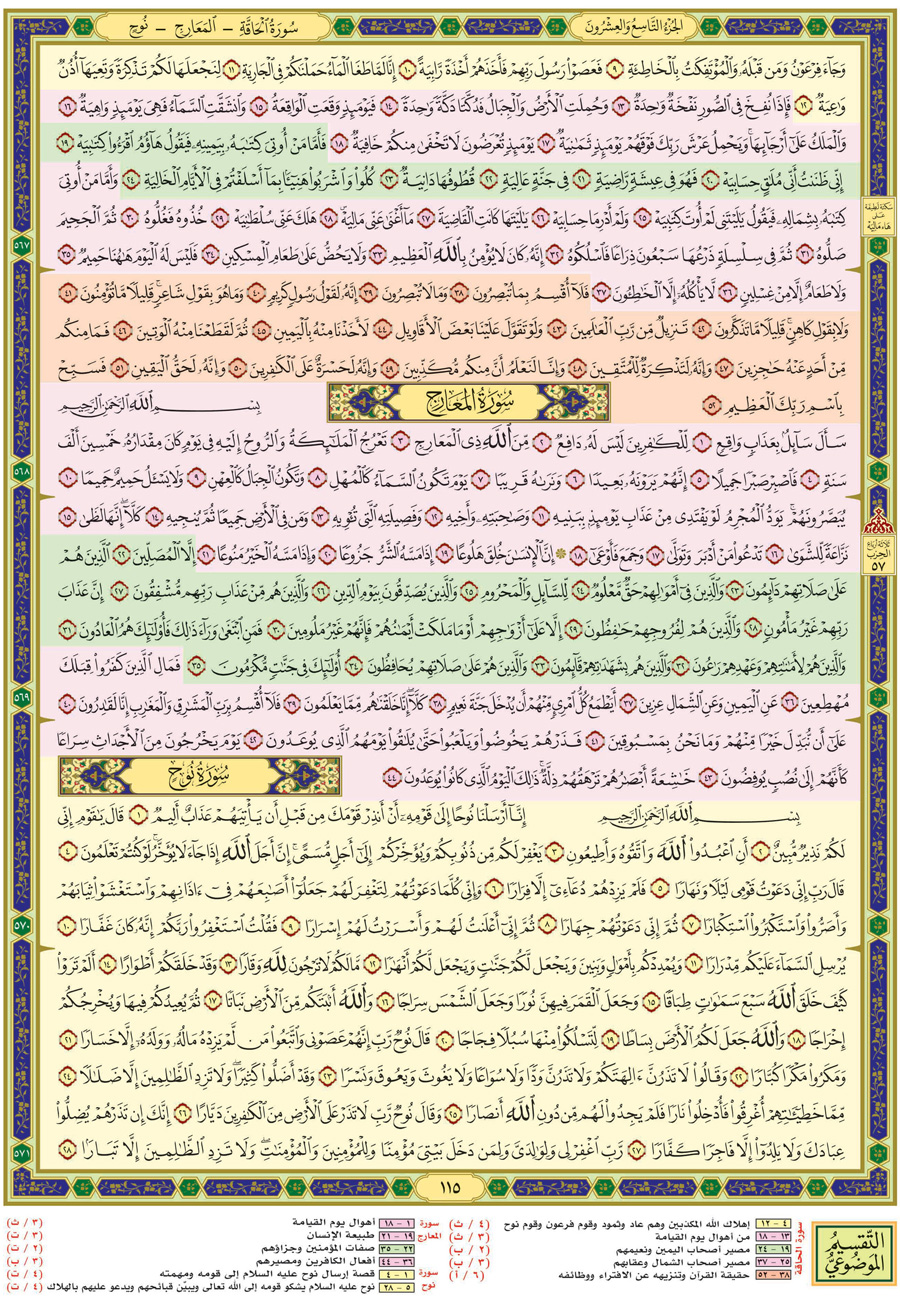 الجُزْءُ التَّاسِعُ وَالعِشْرُونَ
سُورَةُ الْحَاقَّةِ - الْمَعَارِجِ - نُوحٍ
وَجَآءَ فِرْعَوْنُ وَمَن قَبْلَهُۥ وَٱلْمُؤْتَفِكَٰتُ بِٱلْخَاطِئَةِ ٩ فَعَصَوْا۟ رَسُولَ رَبِّهِمْ فَأَخَذَهُمْ أَخْذَةً رَّابِيَةً ١٠ إِنَّا لَمَّا طَغَا ٱلْمَآءُ حَمَلْنَٰكُمْ فِى ٱلْجَارِيَةِ ١١ لِنَجْعَلَهَا لَكُمْ تَذْكِرَةً وَتَعِيَهَآ أُذُنٌ
وَٰعِيَةٌ ١٢ فَإِذَا نُفِخَ فِى ٱلصُّورِ نَفْخَةٌ وَٰحِدَةٌ ١٣ وَحُمِلَتِ ٱلْأَرْضُ وَٱلْجِبَالُ فَدُكَّتَا دَكَّةً وَٰحِدَةً ١٤ فَيَوْمَئِذٍ وَقَعَتِ ٱلْوَاقِعَةُ ١٥ وَٱنشَقَّتِ ٱلسَّمَآءُ فَهِىَ يَوْمَئِذٍ وَاهِيَةٌ ١٦
وَٱلْمَلَكُ عَلَىٰٓ أَرْجَآئِهَا ۚ وَيَحْمِلُ عَرْشَ رَبِّكَ فَوْقَهُمْ يَوْمَئِذٍ ثَمَٰنِيَةٌ ١٧ يَوْمَئِذٍ تُعْرَضُونَ لَا تَخْفَىٰ مِنكُمْ خَافِيَةٌ ١٨ فَأَمَّا مَنْ أُوتِىَ كِتَٰبَهُۥ بِيَمِينِهِۦ فَيَقُولُ هَآؤُمُ ٱقْرَءُوا۟ كِتَٰبِيَهْ ١٩
إِنِّى ظَنَنتُ أَنِّى مُلَٰقٍ حِسَابِيَهْ ٢٠ فَهُوَ فِى عِيشَةٍ رَّاضِيَةٍ ٢١ فِى جَنَّةٍ عَالِيَةٍ ٢٢ قُطُوفُهَا دَانِيَةٌ ٢٣ كُلُوا۟ وَٱشْرَبُوا۟ هَنِيٓـًٔۢا بِمَآ أَسْلَفْتُمْ فِى ٱلْأَيَّامِ ٱلْخَالِيَةِ ٢٤ وَأَمَّا مَنْ أُوتِىَ
كِتَٰبَهُۥ بِشِمَالِهِۦ فَيَقُولُ يَٰلَيْتَنِى لَمْ أُوتَ كِتَٰبِيَهْ ٢٥ وَلَمْ أَدْرِ مَا حِسَابِيَهْ ٢٦ يَٰلَيْتَهَا كَانَتِ ٱلْقَاضِيَةَ ٢٧ مَآ أَغْنَىٰ عَنِّى مَالِيَهْ ۜ ٢٨ هَلَكَ عَنِّى سُلْطَٰنِيَهْ ٢٩ خُذُوهُ فَغُلُّوهُ ٣٠ ثُمَّ ٱلْجَحِيمَ
صَلُّوهُ ٣١ ثُمَّ فِى سِلْسِلَةٍ ذَرْعُهَا سَبْعُونَ ذِرَاعًا فَٱسْلُكُوهُ ٣٢ إِنَّهُۥ كَانَ لَا يُؤْمِنُ بِٱللَّهِ ٱلْعَظِيمِ ٣٣ وَلَا يَحُضُّ عَلَىٰ طَعَامِ ٱلْمِسْكِينِ ٣٤ فَلَيْسَ لَهُ ٱلْيَوْمَ هَٰهُنَا حَمِيمٌ ٣٥
وَلَا طَعَامٌ إِلَّا مِنْ غِسْلِينٍ ٣٦ لَّا يَأْكُلُهُۥٓ إِلَّا ٱلْخَٰطِـُٔونَ ٣٧ فَلَآ أُقْسِمُ بِمَا تُبْصِرُونَ ٣٨ وَمَا لَا تُبْصِرُونَ ٣٩ إِنَّهُۥ لَقَوْلُ رَسُولٍ كَرِيمٍ ٤٠ وَمَا هُوَ بِقَوْلِ شَاعِرٍ ۚ قَلِيلًا مَّا تُؤْمِنُونَ ٤١
وَلَا بِقَوْلِ كَاهِنٍ ۚ قَلِيلًا مَّا تَذَكَّرُونَ ٤٢ تَنزِيلٌ مِّن رَّبِّ ٱلْعَٰلَمِينَ ٤٣ وَلَوْ تَقَوَّلَ عَلَيْنَا بَعْضَ ٱلْأَقَاوِيلِ ٤٤ لَأَخَذْنَا مِنْهُ بِٱلْيَمِينِ ٤٥ ثُمَّ لَقَطَعْنَا مِنْهُ ٱلْوَتِينَ ٤٦ فَمَا مِنكُم
مِّنْ أَحَدٍ عَنْهُ حَٰجِزِينَ ٤٧ وَإِنَّهُۥ لَتَذْكِرَةٌ لِّلْمُتَّقِينَ ٤٨ وَإِنَّا لَنَعْلَمُ أَنَّ مِنكُم مُّكَذِّبِينَ ٤٩ وَإِنَّهُۥ لَحَسْرَةٌ عَلَى ٱلْكَٰفِرِينَ ٥٠ وَإِنَّهُۥ لَحَقُّ ٱلْيَقِينِ ٥١ فَسَبِّحْ
بِٱسْمِ رَبِّكَ ٱلْعَظِيمِ ٥٢
سُورَةُ الْمَعَارِجِ
بِسْمِ ٱللَّهِ ٱلرَّحْمَٰنِ ٱلرَّحِيمِ
سَأَلَ سَآئِلٌۢ بِعَذَابٍ وَاقِعٍ ١ لِّلْكَٰفِرِينَ لَيْسَ لَهُۥ دَافِعٌ ٢ مِّنَ ٱللَّهِ ذِى ٱلْمَعَارِجِ ٣ تَعْرُجُ ٱلْمَلَٰٓئِكَةُ وَٱلرُّوحُ إِلَيْهِ فِى يَوْمٍ كَانَ مِقْدَارُهُۥ خَمْسِينَ أَلْفَ
سَنَةٍ ٤ فَٱصْبِرْ صَبْرًا جَمِيلًا ٥ إِنَّهُمْ يَرَوْنَهُۥ بَعِيدًا ٦ وَنَرَىٰهُ قَرِيبًا ٧ يَوْمَ تَكُونُ ٱلسَّمَآءُ كَٱلْمُهْلِ ٨ وَتَكُونُ ٱلْجِبَالُ كَٱلْعِهْنِ ٩ وَلَا يَسْـَٔلُ حَمِيمٌ حَمِيمًا ١٠
يُبَصَّرُونَهُمْ ۚ يَوَدُّ ٱلْمُجْرِمُ لَوْ يَفْتَدِى مِنْ عَذَابِ يَوْمِئِذٍۭ بِبَنِيهِ ١١ وَصَٰحِبَتِهِۦ وَأَخِيهِ ١٢ وَفَصِيلَتِهِ ٱلَّتِى تُـْٔوِيهِ ١٣ وَمَن فِى ٱلْأَرْضِ جَمِيعًا ثُمَّ يُنجِيهِ ١٤ كَلَّآ ۖ إِنَّهَا لَظَىٰ ١٥
نَزَّاعَةً لِّلشَّوَىٰ ١٦ تَدْعُوا۟ مَنْ أَدْبَرَ وَتَوَلَّىٰ ١٧ وَجَمَعَ فَأَوْعَىٰٓ ١٨ ۞ إِنَّ ٱلْإِنسَٰنَ خُلِقَ هَلُوعًا ١٩ إِذَا مَسَّهُ ٱلشَّرُّ جَزُوعًا ٢٠ وَإِذَا مَسَّهُ ٱلْخَيْرُ مَنُوعًا ٢١ إِلَّا ٱلْمُصَلِّينَ ٢٢ ٱلَّذِينَ هُمْ
عَلَىٰ صَلَاتِهِمْ دَآئِمُونَ ٢٣ وَٱلَّذِينَ فِىٓ أَمْوَٰلِهِمْ حَقٌّ مَّعْلُومٌ ٢٤ لِّلسَّآئِلِ وَٱلْمَحْرُومِ ٢٥ وَٱلَّذِينَ يُصَدِّقُونَ بِيَوْمِ ٱلدِّينِ ٢٦ وَٱلَّذِينَ هُم مِّنْ عَذَابِ رَبِّهِم مُّشْفِقُونَ ٢٧ إِنَّ عَذَابَ
رَبِّهِمْ غَيْرُ مَأْمُونٍ ٢٨ وَٱلَّذِينَ هُمْ لِفُرُوجِهِمْ حَٰفِظُونَ ٢٩ إِلَّا عَلَىٰٓ أَزْوَٰجِهِمْ أَوْ مَا مَلَكَتْ أَيْمَٰنُهُمْ فَإِنَّهُمْ غَيْرُ مَلُومِينَ ٣٠ فَمَنِ ٱبْتَغَىٰ وَرَآءَ ذَٰلِكَ فَأُو۟لَٰٓئِكَ هُمُ ٱلْعَادُونَ ٣١
وَٱلَّذِينَ هُمْ لِأَمَٰنَٰتِهِمْ وَعَهْدِهِمْ رَٰعُونَ ٣٢ وَٱلَّذِينَ هُم بِشَهَٰدَٰتِهِمْ قَآئِمُونَ ٣٣ وَٱلَّذِينَ هُمْ عَلَىٰ صَلَاتِهِمْ يُحَافِظُونَ ٣٤ أُو۟لَٰٓئِكَ فِى جَنَّٰتٍ مُّكْرَمُونَ ٣٥ فَمَالِ ٱلَّذِينَ كَفَرُوا۟ قِبَلَكَ
مُهْطِعِينَ ٣٦ عَنِ ٱلْيَمِينِ وَعَنِ ٱلشِّمَالِ عِزِينَ ٣٧ أَيَطْمَعُ كُلُّ ٱمْرِئٍ مِّنْهُمْ أَن يُدْخَلَ جَنَّةَ نَعِيمٍ ٣٨ كَلَّآ ۖ إِنَّا خَلَقْنَٰهُم مِّمَّا يَعْلَمُونَ ٣٩ فَلَآ أُقْسِمُ بِرَبِّ ٱلْمَشَٰرِقِ وَٱلْمَغَٰرِبِ إِنَّا لَقَٰدِرُونَ ٤٠
عَلَىٰٓ أَن نُّبَدِّلَ خَيْرًا مِّنْهُمْ وَمَا نَحْنُ بِمَسْبُوقِينَ ٤١ فَذَرْهُمْ يَخُوضُوا۟ وَيَلْعَبُوا۟ حَتَّىٰ يُلَٰقُوا۟ يَوْمَهُمُ ٱلَّذِى يُوعَدُونَ ٤٢ يَوْمَ يَخْرُجُونَ مِنَ ٱلْأَجْدَاثِ سِرَاعًا
كَأَنَّهُمْ إِلَىٰ نُصُبٍ يُوفِضُونَ ٤٣ خَٰشِعَةً أَبْصَٰرُهُمْ تَرْهَقُهُمْ ذِلَّةٌ ۚ ذَٰلِكَ ٱلْيَوْمُ ٱلَّذِى كَانُوا۟ يُوعَدُونَ ٤٤
سُورَةُ نُوحٍ
بِسْمِ ٱللَّهِ ٱلرَّحْمَٰنِ ٱلرَّحِيمِ
إِنَّآ أَرْسَلْنَا نُوحًا إِلَىٰ قَوْمِهِۦٓ أَنْ أَنذِرْ قَوْمَكَ مِن قَبْلِ أَن يَأْتِيَهُمْ عَذَابٌ أَلِيمٌ ١ قَالَ يَٰقَوْمِ إِنِّى
لَكُمْ نَذِيرٌ مُّبِينٌ ٢ أَنِ ٱعْبُدُوا۟ ٱللَّهَ وَٱتَّقُوهُ وَأَطِيعُونِ ٣ يَغْفِرْ لَكُم مِّن ذُنُوبِكُمْ وَيُؤَخِّرْكُمْ إِلَىٰٓ أَجَلٍ مُّسَمًّى ۚ إِنَّ أَجَلَ ٱللَّهِ إِذَا جَآءَ لَا يُؤَخَّرُ ۖ لَوْ كُنتُمْ تَعْلَمُونَ ٤
قَالَ رَبِّ إِنِّى دَعَوْتُ قَوْمِى لَيْلًا وَنَهَارًا ٥ فَلَمْ يَزِدْهُمْ دُعَآءِىٓ إِلَّا فِرَارًا ٦ وَإِنِّى كُلَّمَا دَعَوْتُهُمْ لِتَغْفِرَ لَهُمْ جَعَلُوٓا۟ أَصَٰبِعَهُمْ فِىٓ ءَاذَانِهِمْ وَٱسْتَغْشَوْا۟ ثِيَابَهُمْ
وَأَصَرُّوا۟ وَٱسْتَكْبَرُوا۟ ٱسْتِكْبَارًا ٧ ثُمَّ إِنِّى دَعَوْتُهُمْ جِهَارًا ٨ ثُمَّ إِنِّىٓ أَعْلَنتُ لَهُمْ وَأَسْرَرْتُ لَهُمْ إِسْرَارًا ٩ فَقُلْتُ ٱسْتَغْفِرُوا۟ رَبَّكُمْ إِنَّهُۥ كَانَ غَفَّارًا ١٠
يُرْسِلِ ٱلسَّمَآءَ عَلَيْكُم مِّدْرَارًا ١١ وَيُمْدِدْكُم بِأَمْوَٰلٍ وَبَنِينَ وَيَجْعَل لَّكُمْ جَنَّٰتٍ وَيَجْعَل لَّكُمْ أَنْهَٰرًا ١٢ مَّا لَكُمْ لَا تَرْجُونَ لِلَّهِ وَقَارًا ١٣ وَقَدْ خَلَقَكُمْ أَطْوَارًا ١٤ أَلَمْ تَرَوْا۟
كَيْفَ خَلَقَ ٱللَّهُ سَبْعَ سَمَٰوَٰتٍ طِبَاقًا ١٥ وَجَعَلَ ٱلْقَمَرَ فِيهِنَّ نُورًا وَجَعَلَ ٱلشَّمْسَ سِرَاجًا ١٦ وَٱللَّهُ أَنۢبَتَكُم مِّنَ ٱلْأَرْضِ نَبَاتًا ١٧ ثُمَّ يُعِيدُكُمْ فِيهَا وَيُخْرِجُكُمْ
إِخْرَاجًا ١٨ وَٱللَّهُ جَعَلَ لَكُمُ ٱلْأَرْضَ بِسَاطًا ١٩ لِّتَسْلُكُوا۟ مِنْهَا سُبُلًا فِجَاجًا ٢٠ قَالَ نُوحٌ رَّبِّ إِنَّهُمْ عَصَوْنِى وَٱتَّبَعُوا۟ مَن لَّمْ يَزِدْهُ مَالُهُۥ وَوَلَدُهُۥٓ إِلَّا خَسَارًا ٢١
وَمَكَرُوا۟ مَكْرًا كُبَّارًا ٢٢ وَقَالُوا۟ لَا تَذَرُنَّ ءَالِهَتَكُمْ وَلَا تَذَرُنَّ وَدًّا وَلَا سُوَاعًا وَلَا يَغُوثَ وَيَعُوقَ وَنَسْرًا ٢٣ وَقَدْ أَضَلُّوا۟ كَثِيرًا ۖ وَلَا تَزِدِ ٱلظَّٰلِمِينَ إِلَّا ضَلَٰلًا ٢٤
مِّمَّا خَطِيٓـَٰٔتِهِمْ أُغْرِقُوا۟ فَأُدْخِلُوا۟ نَارًا فَلَمْ يَجِدُوا۟ لَهُم مِّن دُونِ ٱللَّهِ أَنصَارًا ٢٥ وَقَالَ نُوحٌ رَّبِّ لَا تَذَرْ عَلَى ٱلْأَرْضِ مِنَ ٱلْكَٰفِرِينَ دَيَّارًا ٢٦ إِنَّكَ إِن تَذَرْهُمْ يُضِلُّوا۟
عِبَادَكَ وَلَا يَلِدُوٓا۟ إِلَّا فَاجِرًا كَفَّارًا ٢٧ رَّبِّ ٱغْفِرْ لِى وَلِوَٰلِدَىَّ وَلِمَن دَخَلَ بَيْتِىَ مُؤْمِنًا وَلِلْمُؤْمِنِينَ وَٱلْمُؤْمِنَٰتِ وَلَا تَزِدِ ٱلظَّٰلِمِينَ إِلَّا تَبَارًۢا ٢٨
سكتة لطيفة
على
هاء مَالِيَهْ
ثلاثة أرباع
الحزب
٥٧
٥٦٧
٥٦٨
٥٦٩
٥٧٠
٥٧١
١١٥
التَّقسِيمُ
المَوضُوعِيُّ
سورة الحاقة
٤ - ١٢ إهلاك الله المكذبين وهم عاد وثمود وقوم فرعون وقوم نوح (٤ / ث)
١٣ - ١٨ من أهوال يوم القيامة (٣ / ث)
١٩ - ٢٤ مصير أصحاب اليمين ونعيمهم (٢ / ب)
٢٥ - ٣٧ مصير أصحاب الشمال وعقابهم (٣ / ب)
٣٨ - ٥٢ حقيقة القرآن وتنزيهه عن الافتراء ووظائفه (٦ / أ)
سورة المعارج
١ - ١٨ أهوال يوم القيامة (٣ / ث)
١٩ - ٢١ طبيعة الإنسان (٣ / ت)
٢٢ - ٣٥ صفات المؤمنين وجزاؤهم (٢ / ت)
٣٦ - ٤٤ أفعال الكافرين ومصيرهم (٣ / ب)
سورة نوح
١ - ٤ قصة إرسال نوح عليه السلام إلى قومه ومهمته (٤ / ت)
٥ - ٢٨ نوح عليه السلام يشكو قومه إلى الله تعالى ويبيّن قبائحهم ويدعو عليهم بالهلاك (٤ / ت)